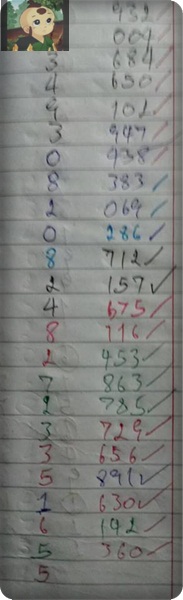 932
004
3 684
4 650
9 102
3 947
0 938
8 383
2 069
0 286
8 712
2 157
4 675
8 116
2 453
7 863
2 785
3 729
3 656
5 891
1 630
6 192
5 360
5